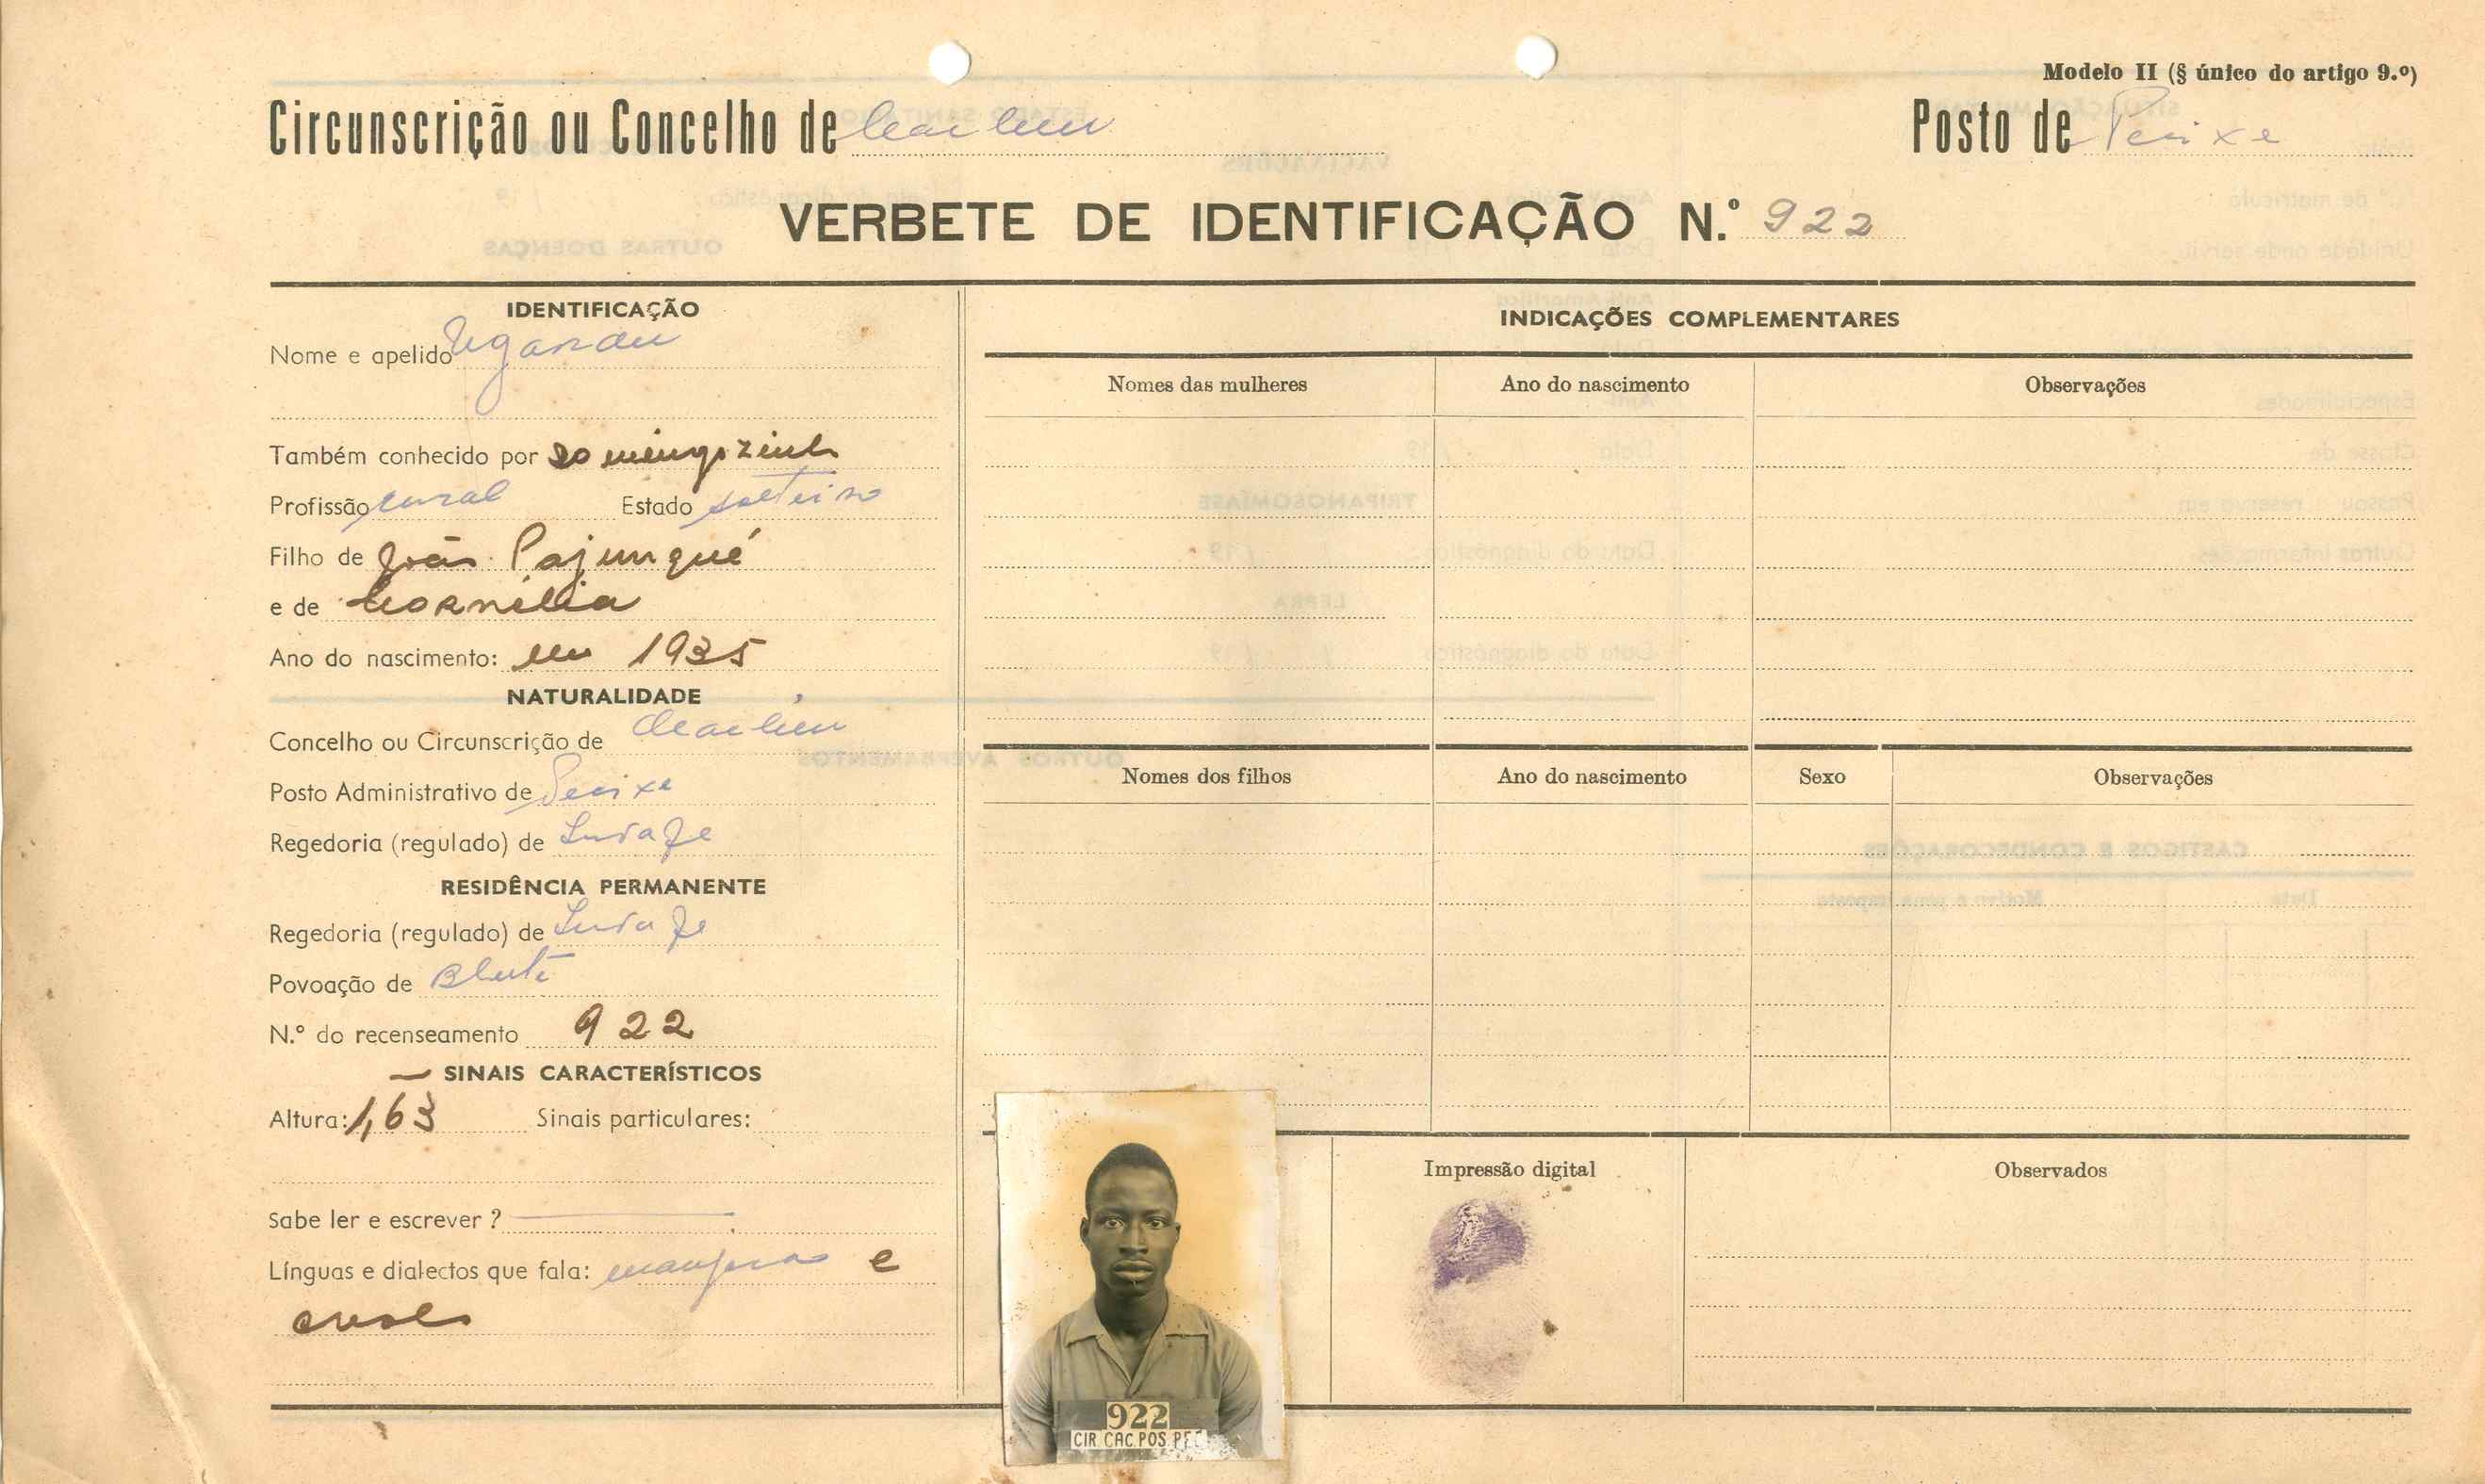 Modelo II (§ único do artigo 9.º)
Circunscrição ou Concelho de Cacheu
Posto de Pecixe
VERBETE DE IDENTIFICAÇÃO N.º 922
IDENTIFICAÇÃO
Nome e apelido
Também conhecido por
Profissão rural Estado solteiro
Filho de João Pajunqué
e de Cornélia
Ano do nascimento: em 1935
NATURALIDADE
Concelho ou Circunscrição de Cacheu
Posto Administrativo de Pecixe
Regedoria (regulado) de
RESIDÊNCIA PERMANENTE
Regedoria (regulado) de
Povoação de
N.º do recenseamento 922
SINAIS CARACTERÍSTICOS
Altura: 1,63 Sinais particulares:
Sabe ler e escrever ?
Línguas e dialectos que fala: e
INDICAÇÕES COMPLEMENTARES
Nomes das mulheres Ano do nascimento Observações
Nomes dos filhos Ano do nascimento Sexo Observações
Impressão digital
Observados
922
CIR CAC POS